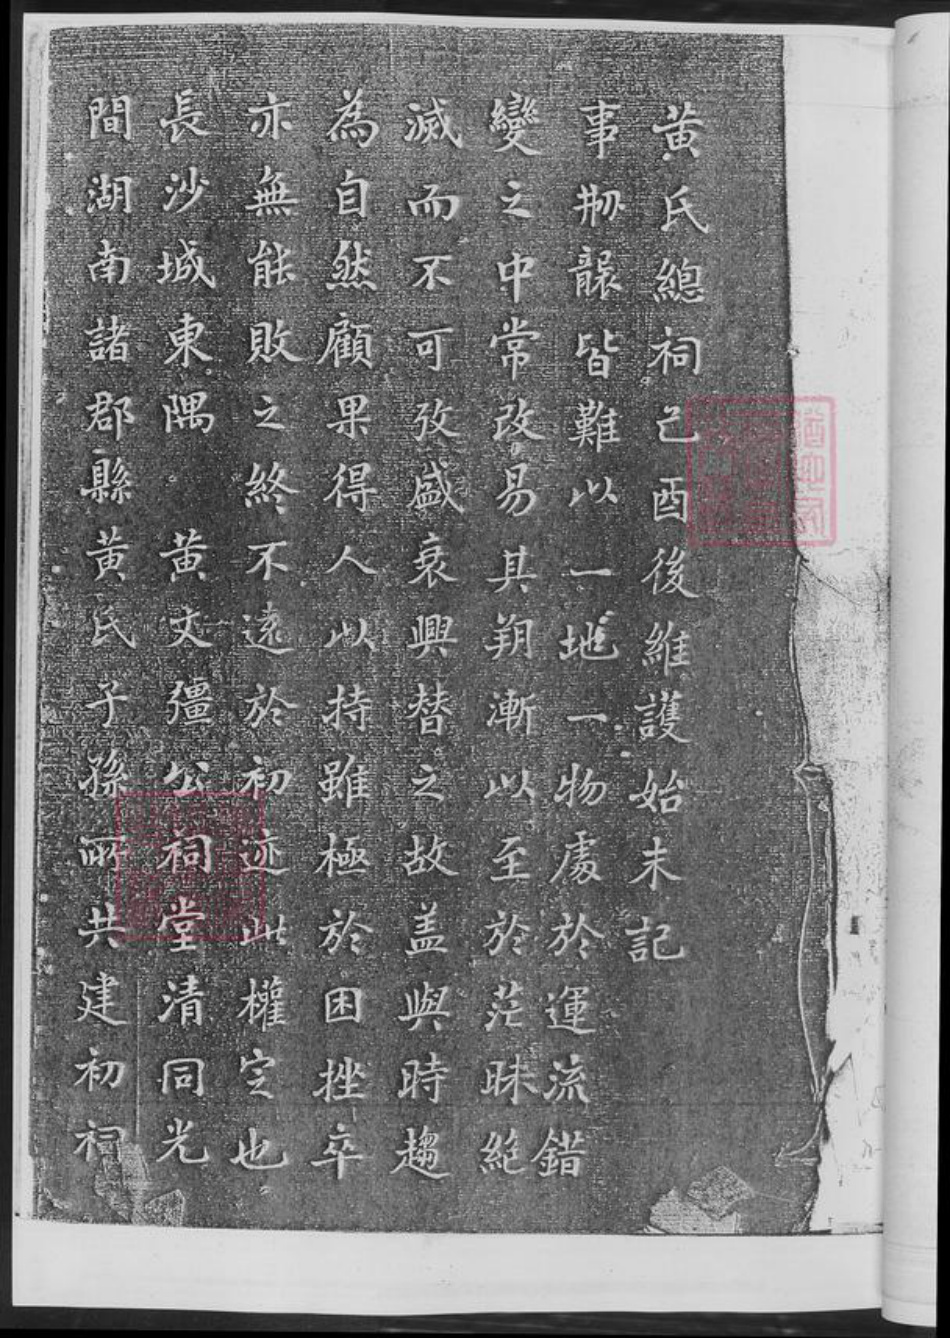 黃氏總祠己酉後維護始末記
事物誠皆難以一地一物處於運流錯
變之中常改易其朔漸以至於茫昧絕
滅而不可攷盛衰興替之故盖與時趨
為自然顧果得人以持雖極於困挫卒
亦無能敗之終不遠於初迹此權定也
長沙城東隅　黃文彊公祠堂清同光
間湖南諸郡縣黃氏子孫所共建初祠